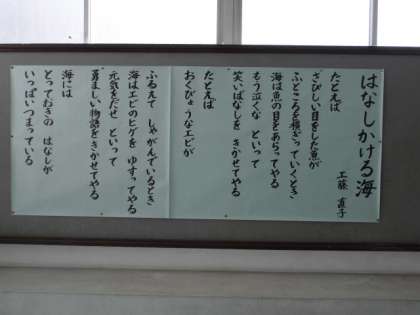 はなしかける海
工藤 直子
たとえば
さびしい目をした魚が
ふところを横ぎっていくとき
海は魚の目をあらってやる
もう泣くな といって
笑いばなしを きかせてやる
たとえば
おくびょうなエビが
ふるえて しゃがんでいるとき
海はエビのヒゲを ゆすってやる
元気をだせ といって
勇ましい物語をきかせてやる
海には
とっておきの はなしが
いっぱいつまっている